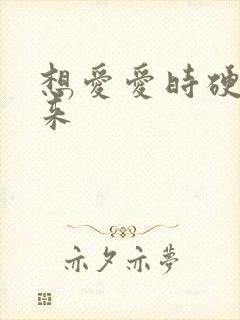 想愛愛時硬
来
亦夕亦夢